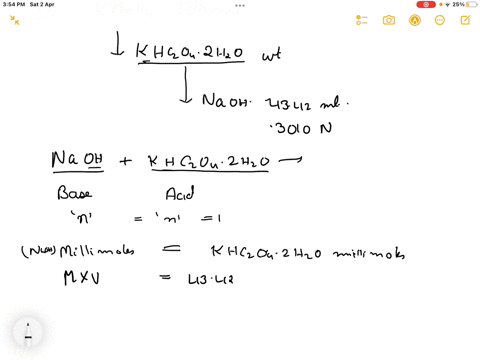 3:54 PM Sat 2 Apr
25%
KHC2O4·2H2O wt
NaOH. 43.42 ml.
·3010 N
NaOH + KHC2O4·2H2O →
Base Acid
'n' = 'n' = 1
(NaOH) Millimoles = KHC2O4·2H2O millimoles
M×V = 43.42